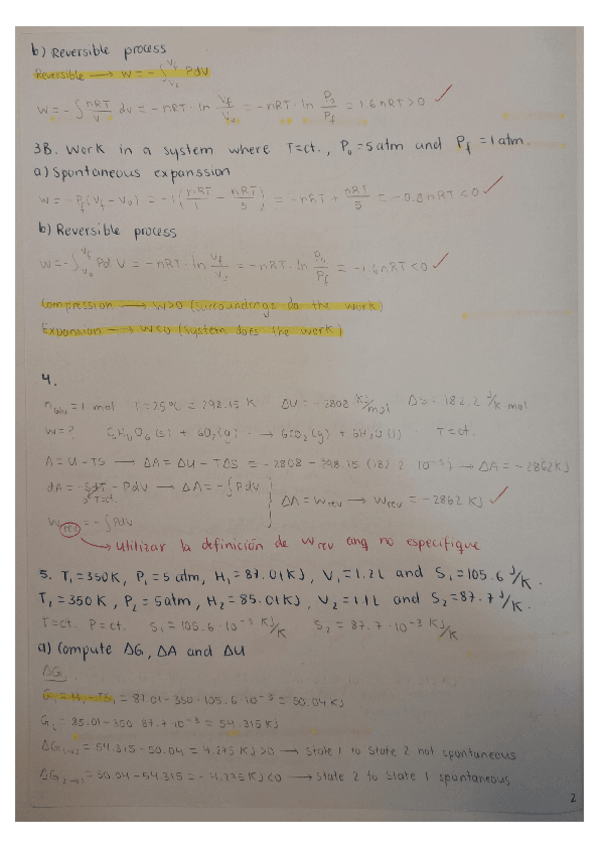 b) Reversible process
Reversible → W = -∫ PdV
W = -∫ nRT/V dV = -nRT · ln Vf/V₀ = -nRT · ln P₀/Pf = 1.6nRT > 0 ✓
3B. Work in a system where T=ct., P₀ = 5 atm and Pf = 1 atm.
a) Spontaneous expanssion
W = -Pf(Vf - V₀) = -1(nRT/1 - nRT/5) = -nRT + nRT/5 = -0.8nRT < 0 ✓
b) Reversible process
W = -∫ PdV = -nRT · ln Vf/V₀ = -nRT · ln P₀/Pf = -1.6nRT < 0 ✓
Compression → W>0 (surroundings do the work)
Expansion → W<0 (system does the work)
4.
= 1 mol T = 25°C = 298.15 K ΔU = -2808 KJ/mol ΔS = 182.2 J/K·mol
W = ? C₆H₁₂O₆(s) + 6O₂(g) → 6CO₂(g) + 6H₂O(l) T = ct.
A = U - TS → ΔA = ΔU - TΔS = -2808 - 298.15 (182.2 · 10⁻³) → ΔA = -2862 KJ
dA = -SdT - PdV → ΔA = -∫PdV
T=ct.
ΔA = Wrev → Wrev = -2862 KJ ✓
Wrev = -∫PdV
→ Utilizar la definición de Wrev anq no especifique
5. T₁ = 350K, P₁ = 5 atm, H₁ = 87.01 KJ, V₁ = 1.2 L and S₁ = 105.6 J/K.
T₂ = 350 K, P₂ = 5 atm, H₂ = 85.01 KJ, V₂ = 1.1 L and S₂ = 87.7 J/K.
T = ct. P = ct. S₁ = 105.6 · 10⁻³ KJ/K S₂ = 87.7 · 10⁻³ KJ/K
a) Compute ΔG, ΔA and ΔU
ΔG
G₁ = H₁ - TS₁ = 87.01 - 350 · 105.6 · 10⁻³ = 50.04 KJ
G₂ = 85.01 - 350 · 87.7 · 10⁻³ = 54.315 KJ
ΔG₁→₂ = 54.315 - 50.04 = 4.275 KJ > 0 → State 1 to State 2 not spontaneous
ΔG₂→₁ = 50.04 - 54.315 = -4.275 KJ < 0 → State 2 to State 1 spontaneous
2